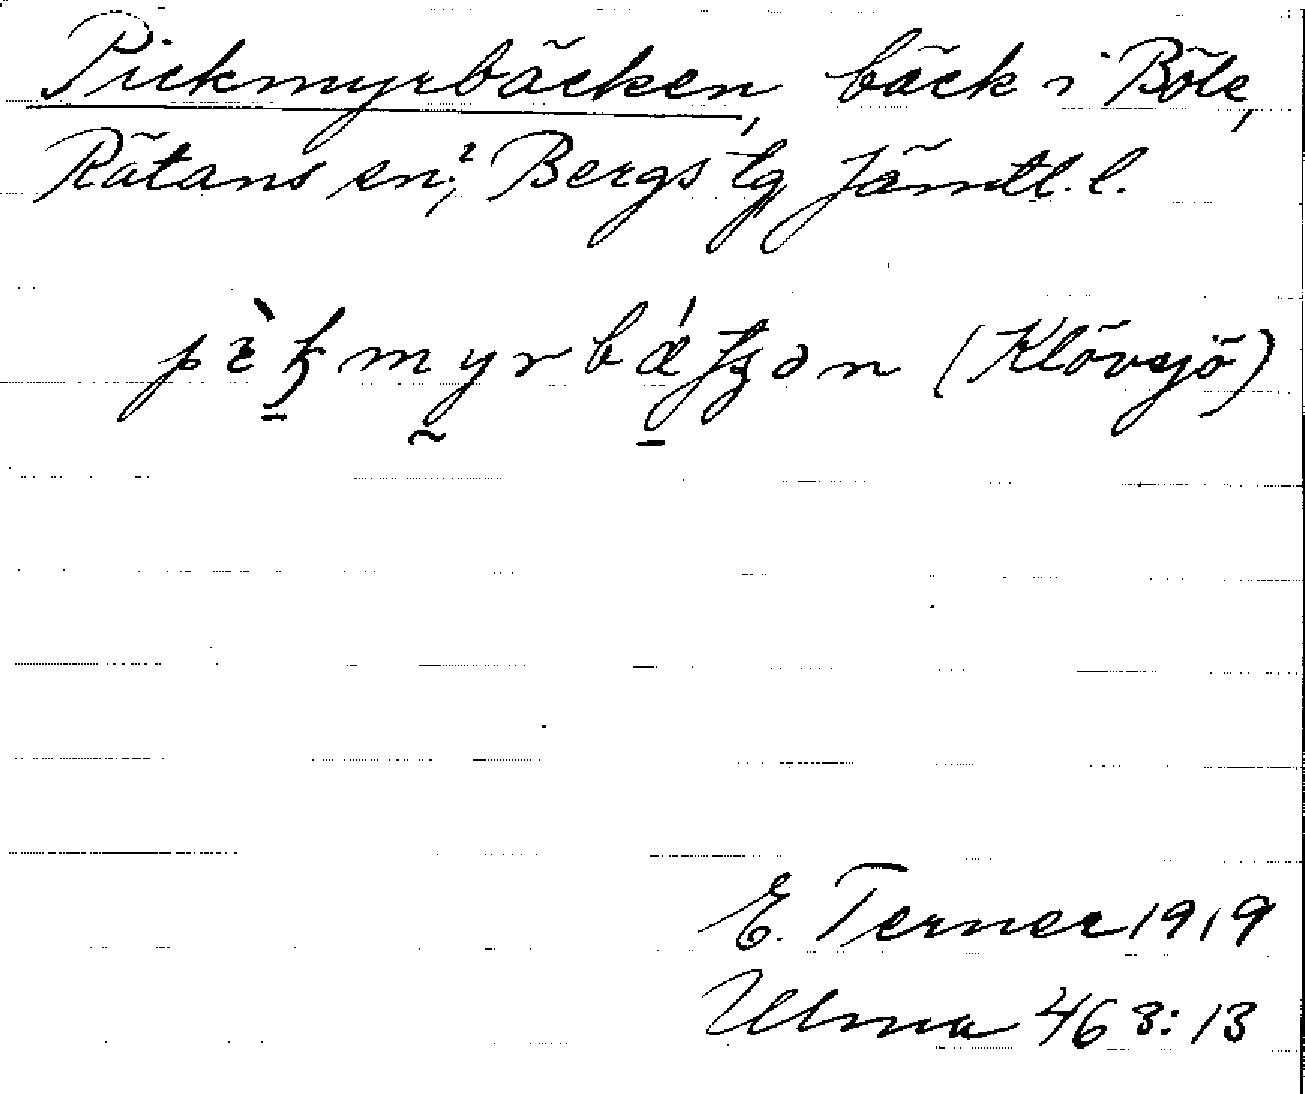 Pickmyrbäcken, bäck i Böle,
Rätans sn?, Bergs tg Jämtl. l.
(Klövsjö)
E. Terner 1919
Ulma 463:13